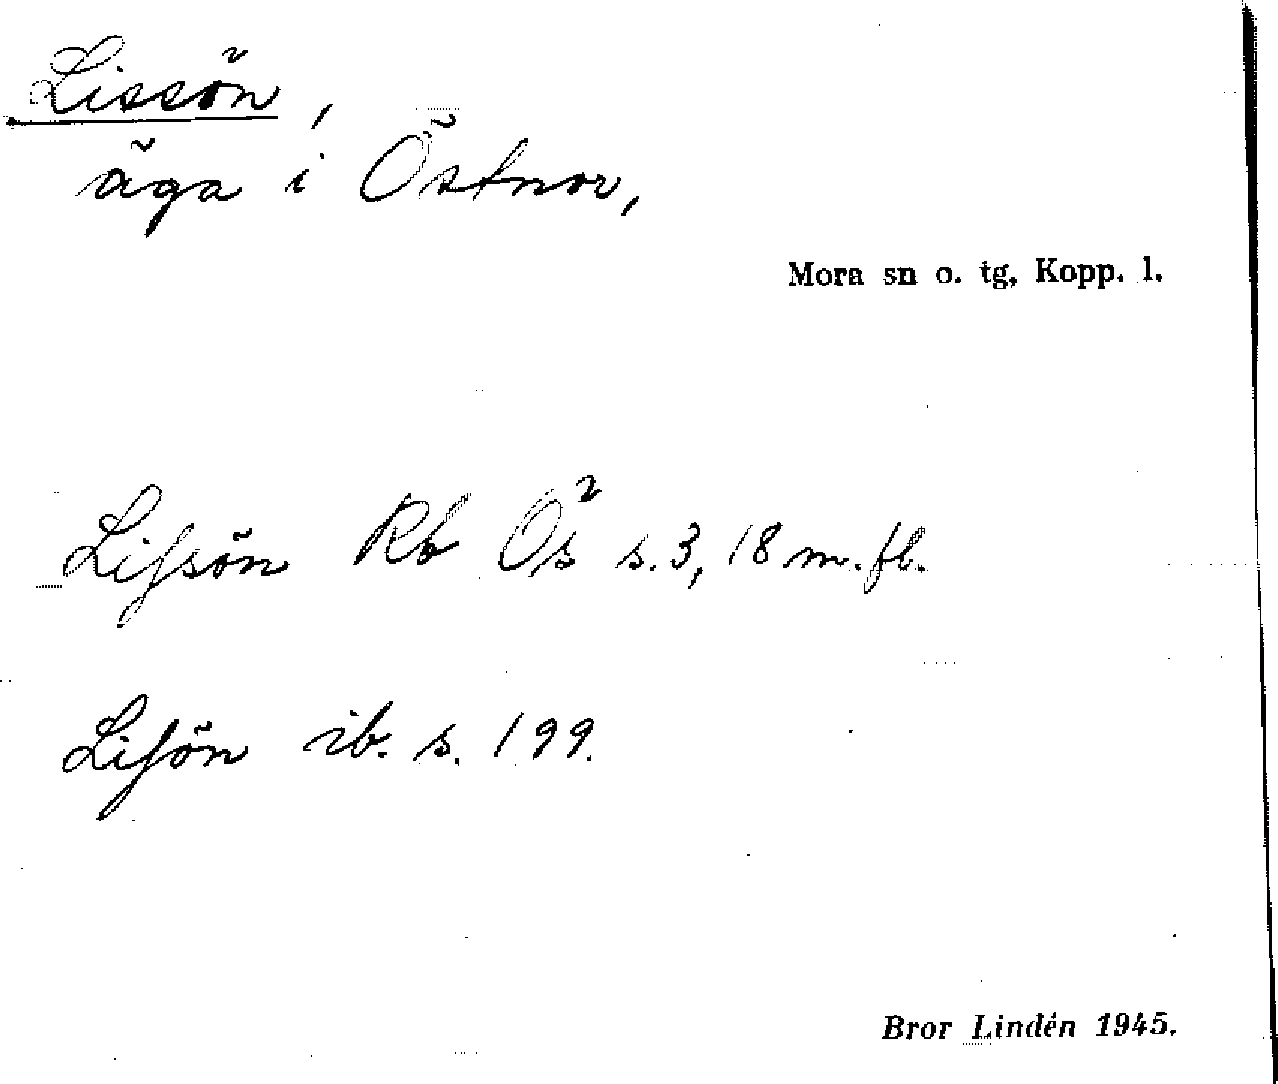 Lissön,
äga i Östnor,
Mora sn o. tg, Kopp. l.
Lifsön Rb Ös s. 3, 18 m. fl.
Lifön ib. s. 199.
Bror Lindén 1945.